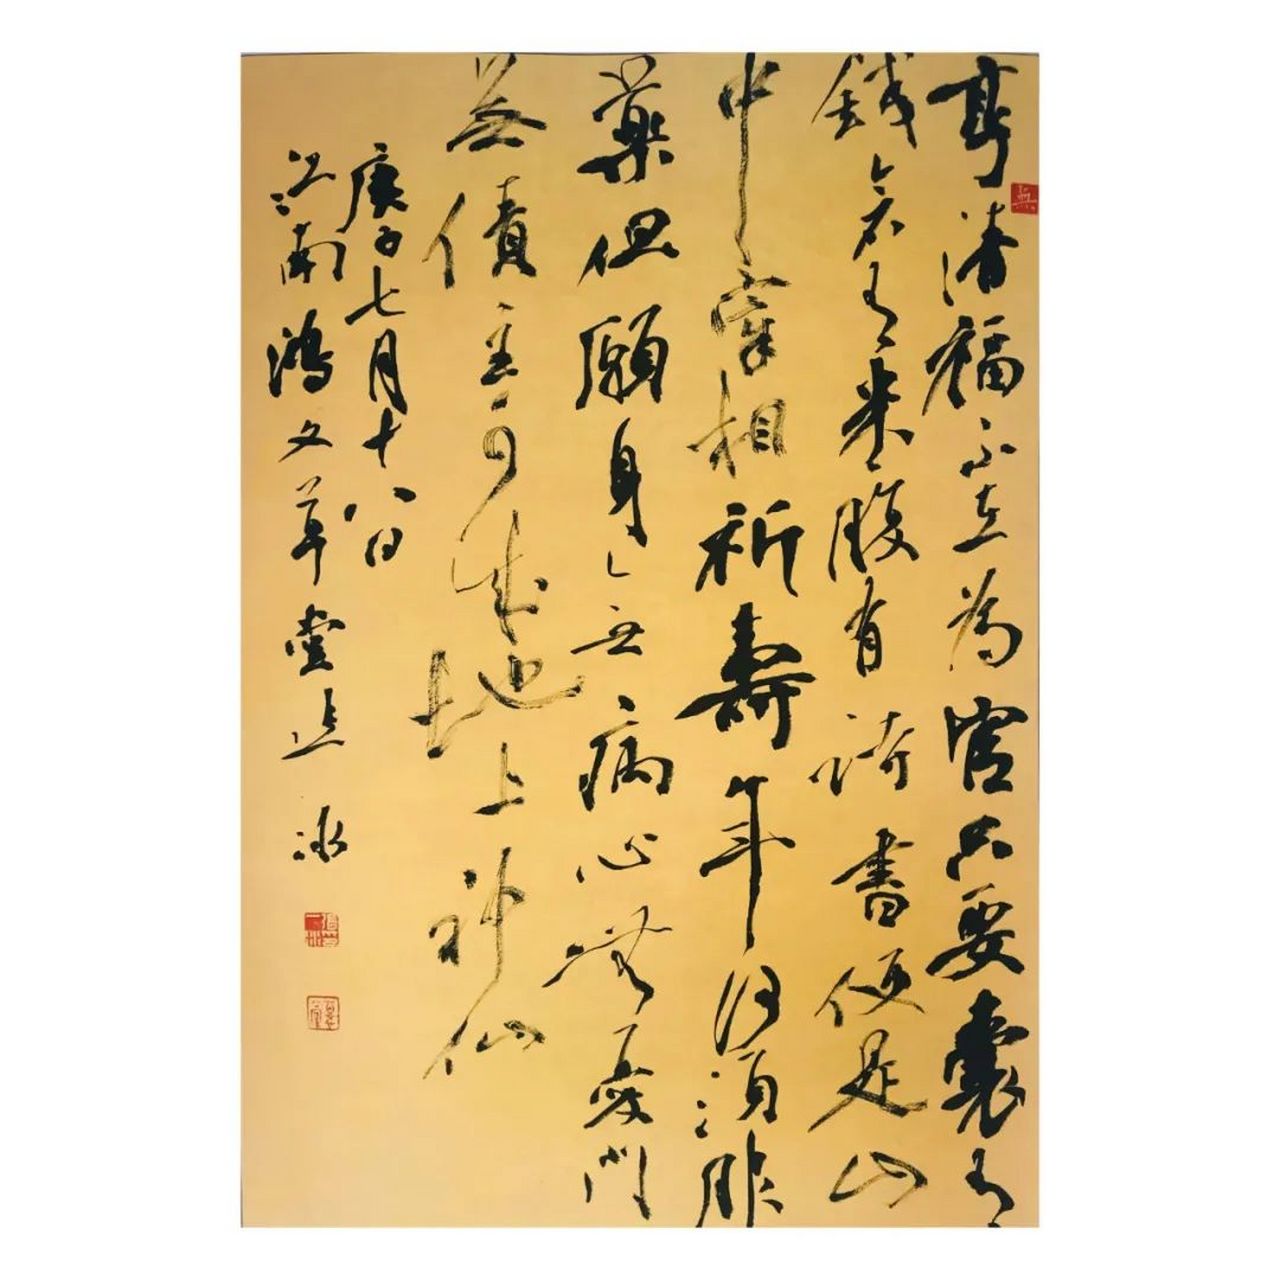 享清福不在為官只要囊有
錢倉有米腹有詩書便是山
中宰相祈壽年何須服
藥但願身无病心無憂門
無債主可成地上神仙
庚子七月十八日
江南鴻文草堂冰